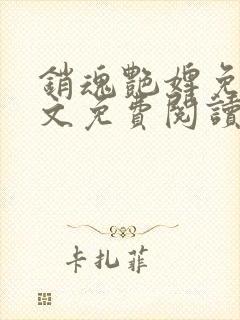 銷魂艷婢免
文免費閱讀
卡扎菲